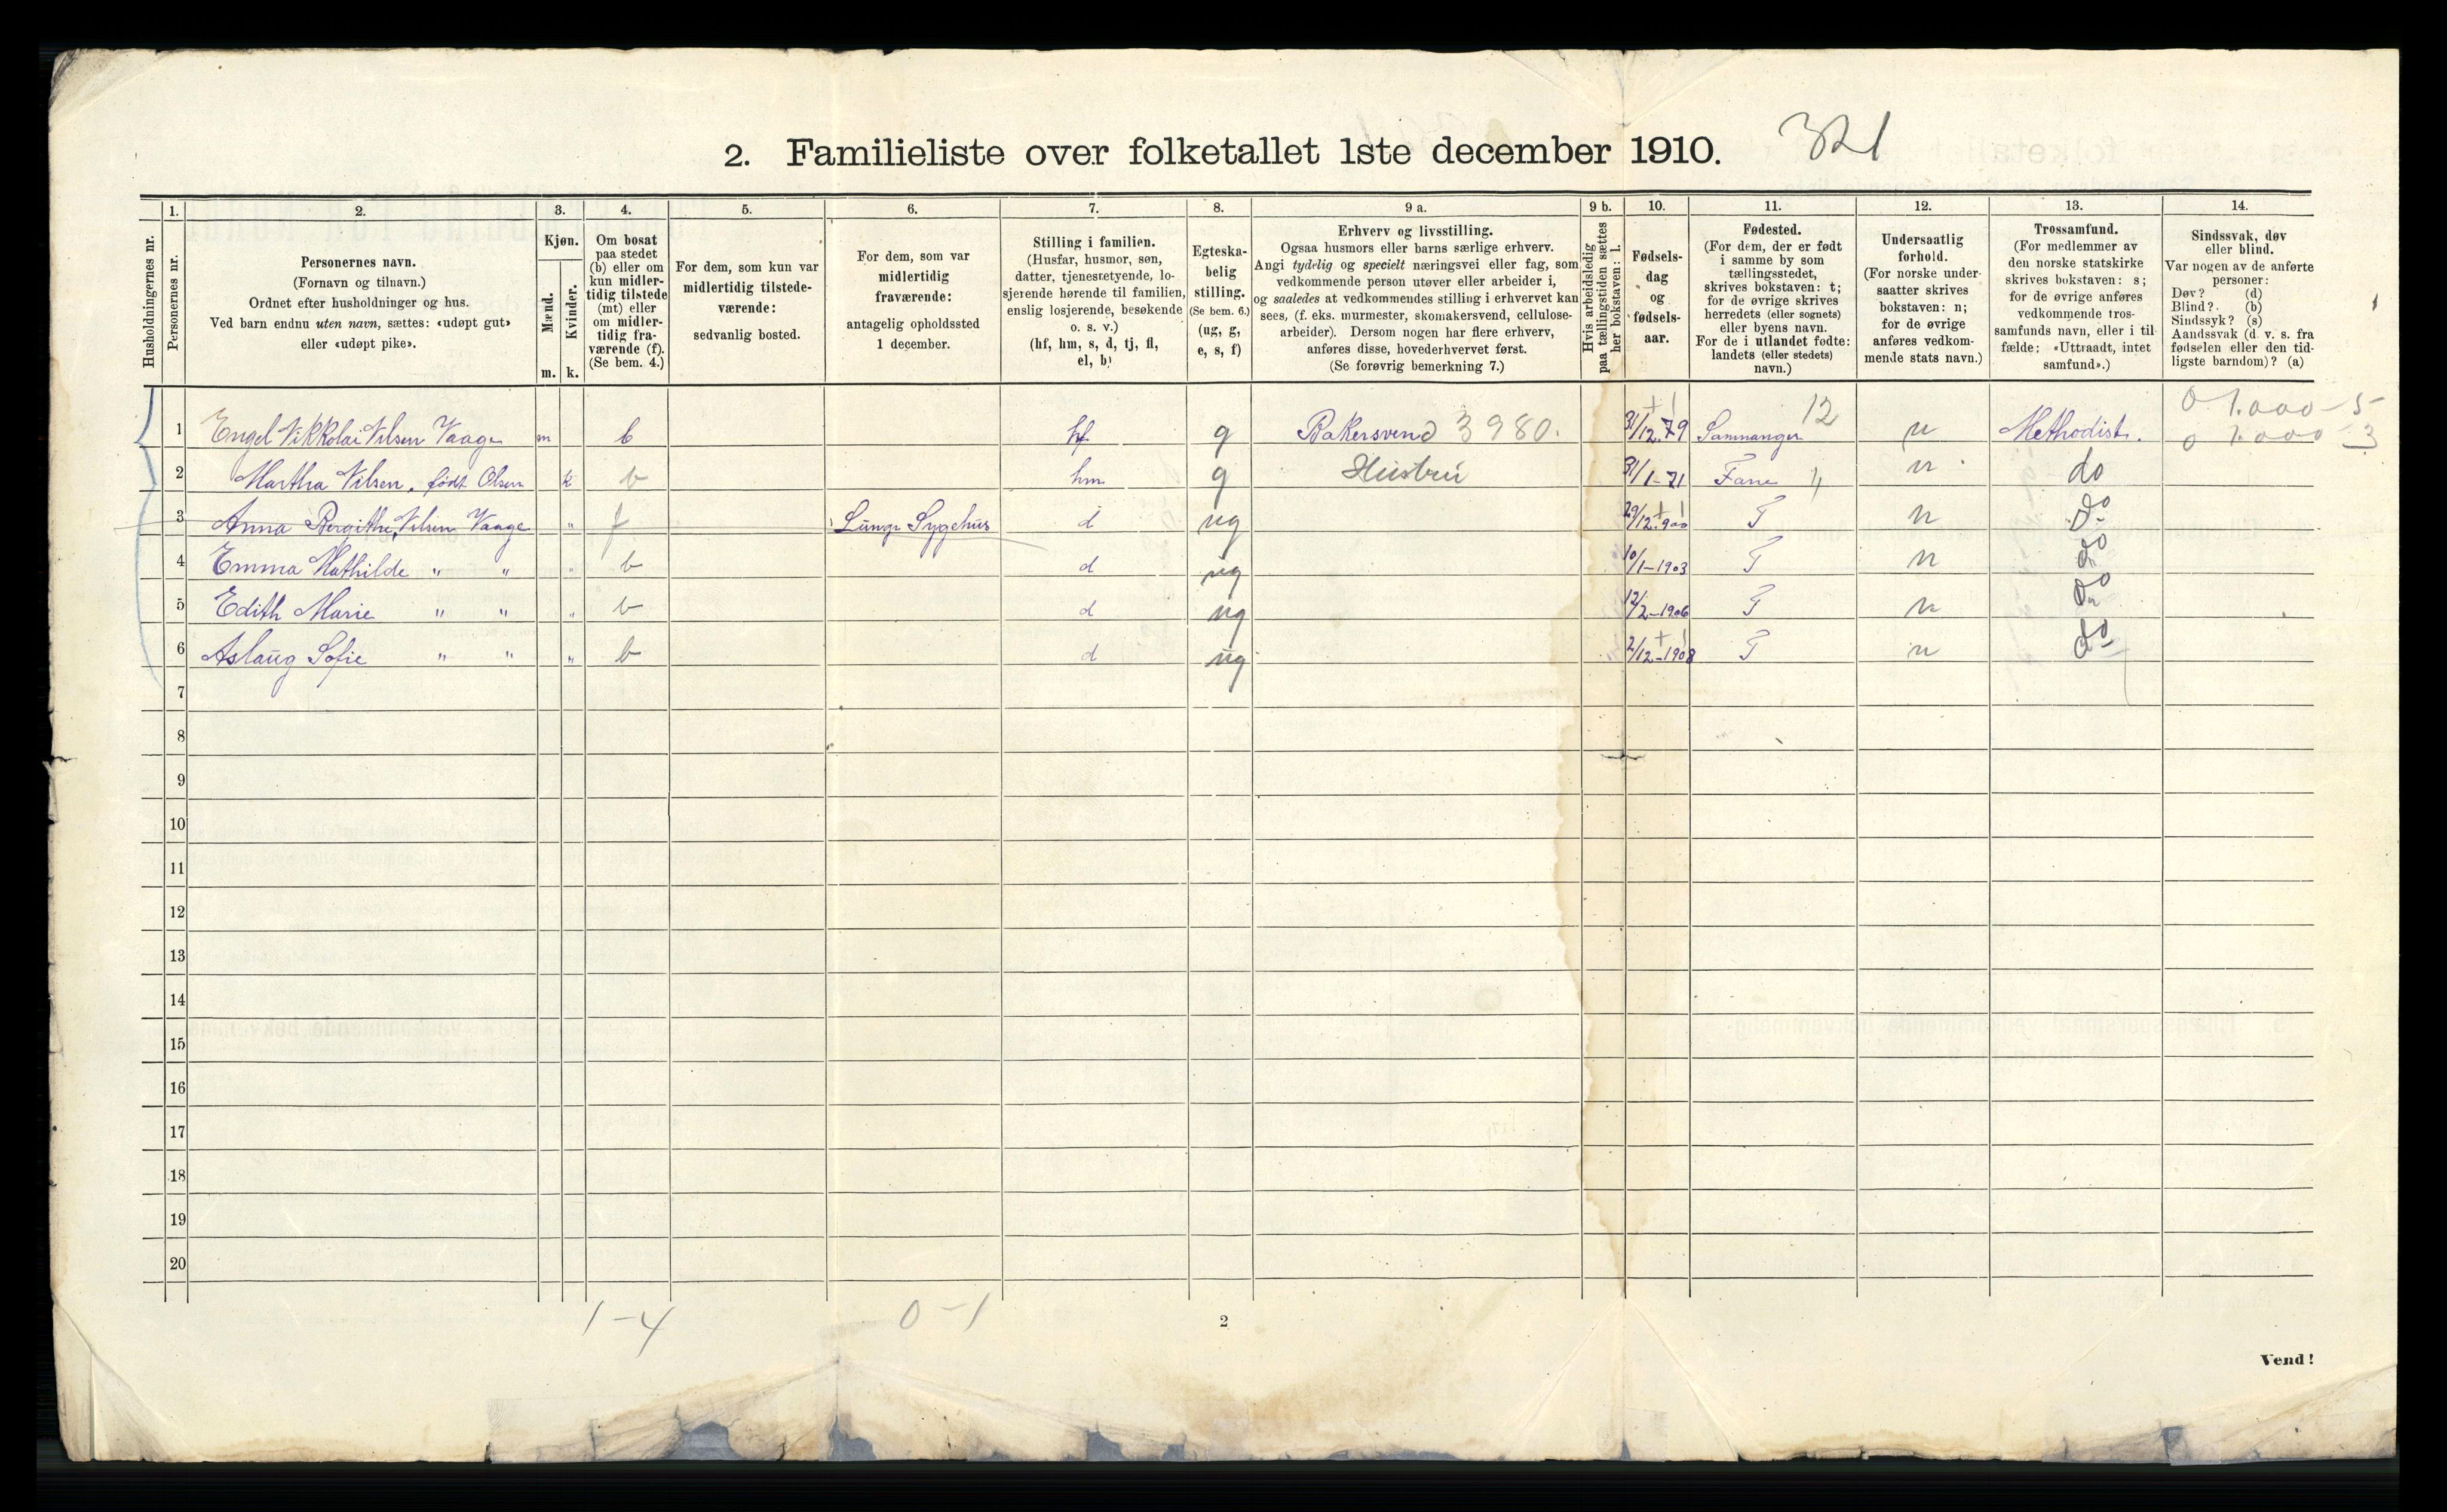 2. Familieliste over folketallet 1ste december 1910. 321
Husholdningernes nr.
1.
Personernes nr.
2.
Personernes navn.
(Fornavn og tilnavn.)
Ordnet efter husholdninger og hus.
Ved barn endnu uten navn, sættes: «udøpt gut»
eller «udøpt pike».
3.
Kjøn.
Mænd.
Kvinder.
m. k.
4.
Om bosat
paa stedet
(b) eller om
kun midler-
tidig tilstede
(mt) eller
om midler-
tidig fra-
værende (f).
(Se bem. 4.)
5.
For dem, som kun var
midlertidig tilstede-
værende:
sedvanlig bosted.
6.
For dem, som var
midlertidig
fraværende:
antagelig opholdssted
1 december.
7.
Stilling i familien.
(Husfar, husmor, søn,
datter, tjenestetyende, lo-
sjerende hørende til familien,
enslig losjerende, besøkende
o. s. v.)
(hf, hm, s, d, tj, fl,
el, b)
8.
Egteska-
belig
stilling.
(Se bem. 6.)
(ug, g,
e, s, f)
9 a.
Erhverv og livsstilling.
Ogsaa husmors eller barns særlige erhverv.
Angi tydelig og specielt næringsvei eller fag, som
vedkommende person utøver eller arbeider i,
og saaledes at vedkommendes stilling i erhvervet kan
sees, (f. eks. murmester, skomakersvend, cellulose-
arbeider). Dersom nogen har flere erhverv,
anføres disse, hovederhvervet først.
(Se forøvrig bemerkning 7.)
9 b.
Hvis arbeidsledig
paa tællingstiden sættes
her bokstaven: l.
10.
Fødsels-
dag
og
fødsels-
aar.
11.
Fødested.
(For dem, der er født
i samme by som
tællingsstedet,
skrives bokstaven: t;
for de øvrige skrives
herredets (eller sognets)
eller byens navn.
For de i utlandet fødte:
landets (eller stedets)
navn.)
12.
Undersaatlig
forhold.
(For norske under-
saatter skrives
bokstaven: n;
for de øvrige
anføres vedkom-
mende stats navn.)
13.
Trossamfund.
(For medlemmer av
den norske statskirke
skrives bokstaven: s;
for de øvrige anføres
vedkommende tros-
samfunds navn, eller i til-
fælde: «Uttraadt, intet
samfund».)
14.
Sindssvak, døv
eller blind.
Var nogen av de anførte
personer:
Døv? (d)
Blind? (b)
Sindssyk? (s)
Aandssvak (d. v. s. fra
fødselen eller den tid-
ligste barndom)? (a)
1 Engel Nikkolai Nilsen Vaage m b hf g Bakersvend 3980. 31/12.79 Samnanger 12 n Methodist. 0 1.000-5
0 1.000-3
2 Martha Nilsen, født Olsen k b hm g Hustru 31/1-71 Fane 4 n do
3 Anna Bergithe Nilsen Vaage " f Lunge Sygehus d ug 29/12.900 T n Do
4 Emma Mathilde " " " b d ug 10/1-1903 T n do
5 Edith Marie " " " b d ug 12/2-1906 T n Do
6 Aslaug Sofie " " " b d ug 2/12-1908 T n do
7
8
9
10
11
12
13
14
15
16
17
18
19
20
1-4 0-1
2
Vend!